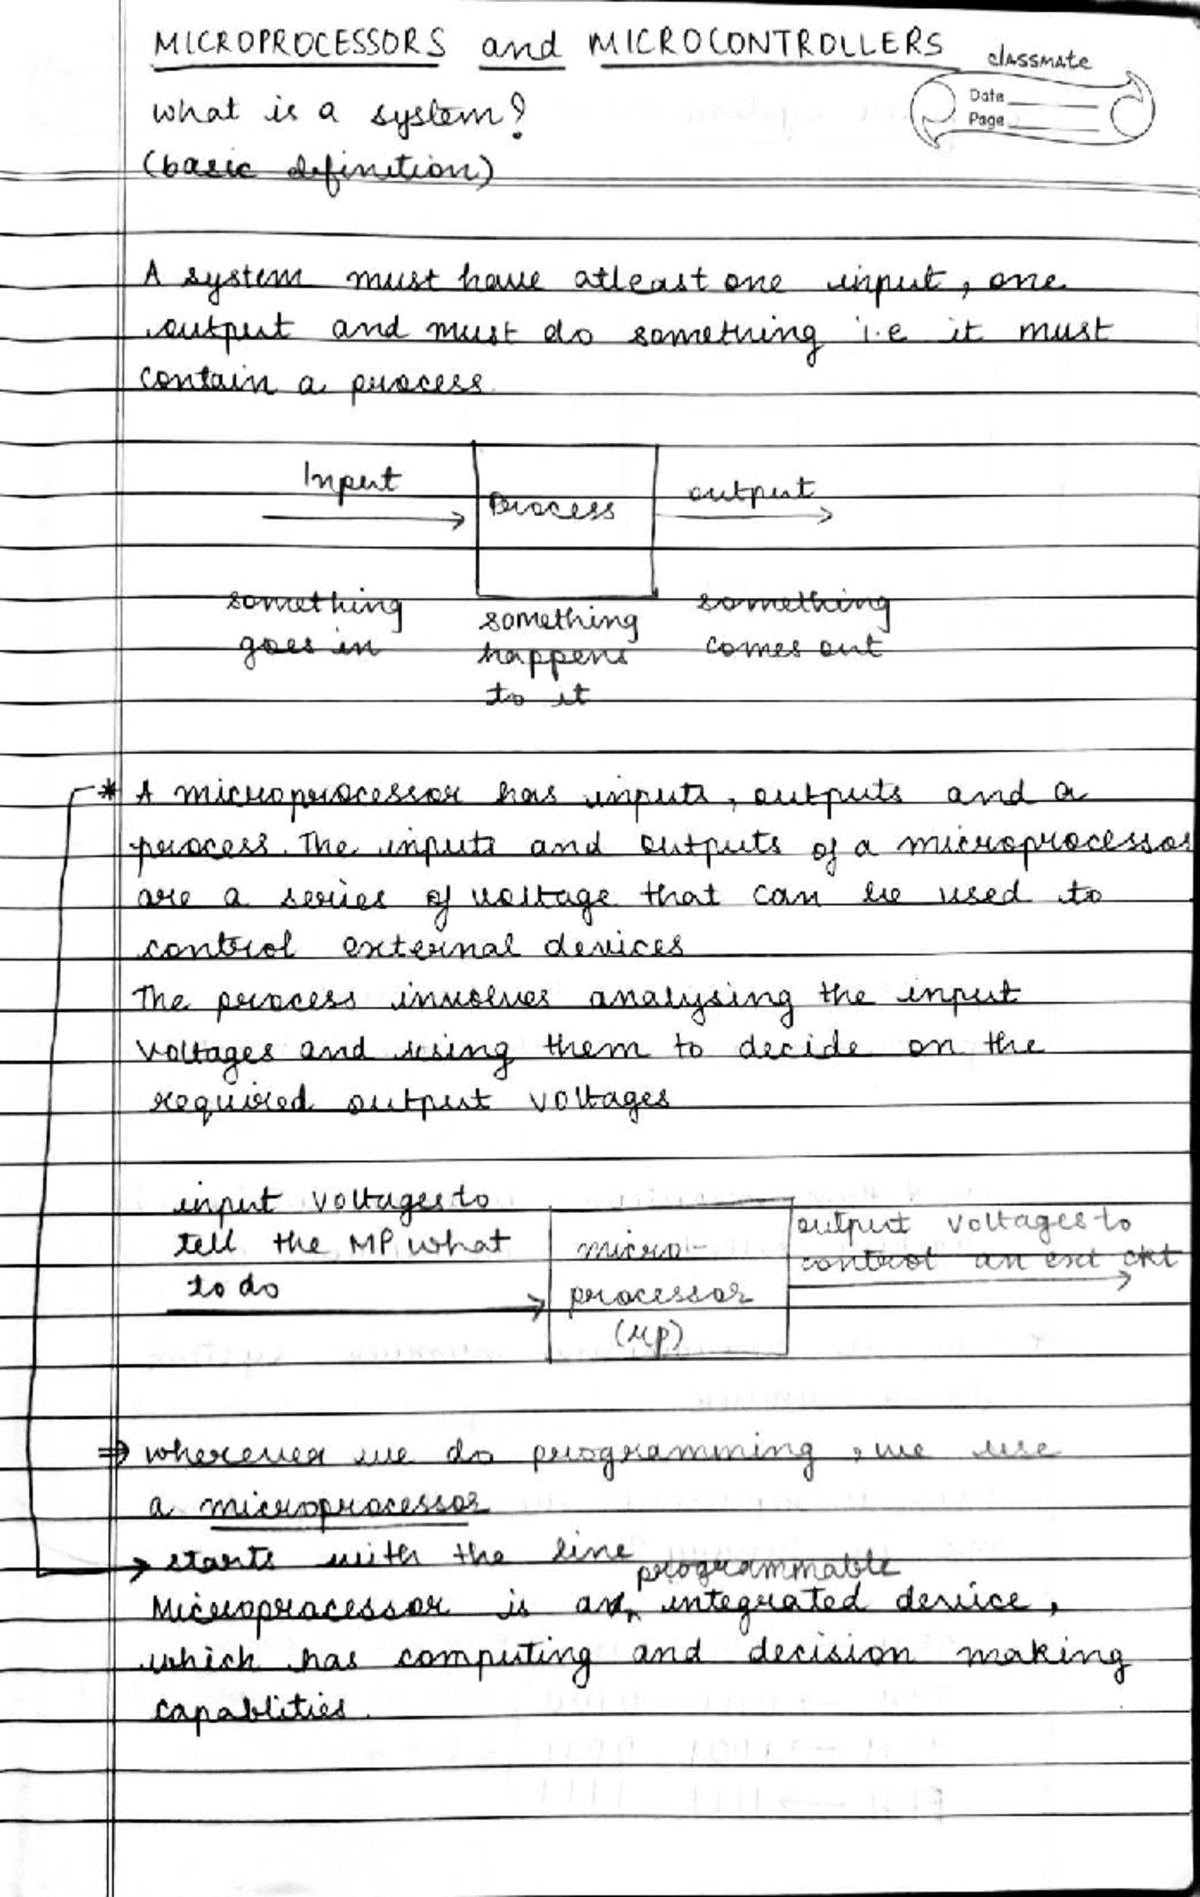 MICROPROCESSORS and MICROCONTROLLERS
classmate
Date
Page
what is a system?
(basic definition)
A system must have atleast one input, one
output and must do something i.e it must
contain a process.
Input
Process
output
something
goes in
something
happens
to it
something
comes out
* A microprocessor has inputs, outputs and a
process. The inputs and outputs of a microprocessor
are a series of voltage that can be used to
control external devices
The process involves analysing the input
voltages and using them to decide on the
required output voltages
input voltages to
tell the MP what
to do
micro-
processor
(μp)
output voltages to
control an ext ckt
⇒ wherever we do programming, we use
a microprocessor
→ starts with the line
programmable
Microprocessor is a integrated device,
which has computing and decision making
capablities.